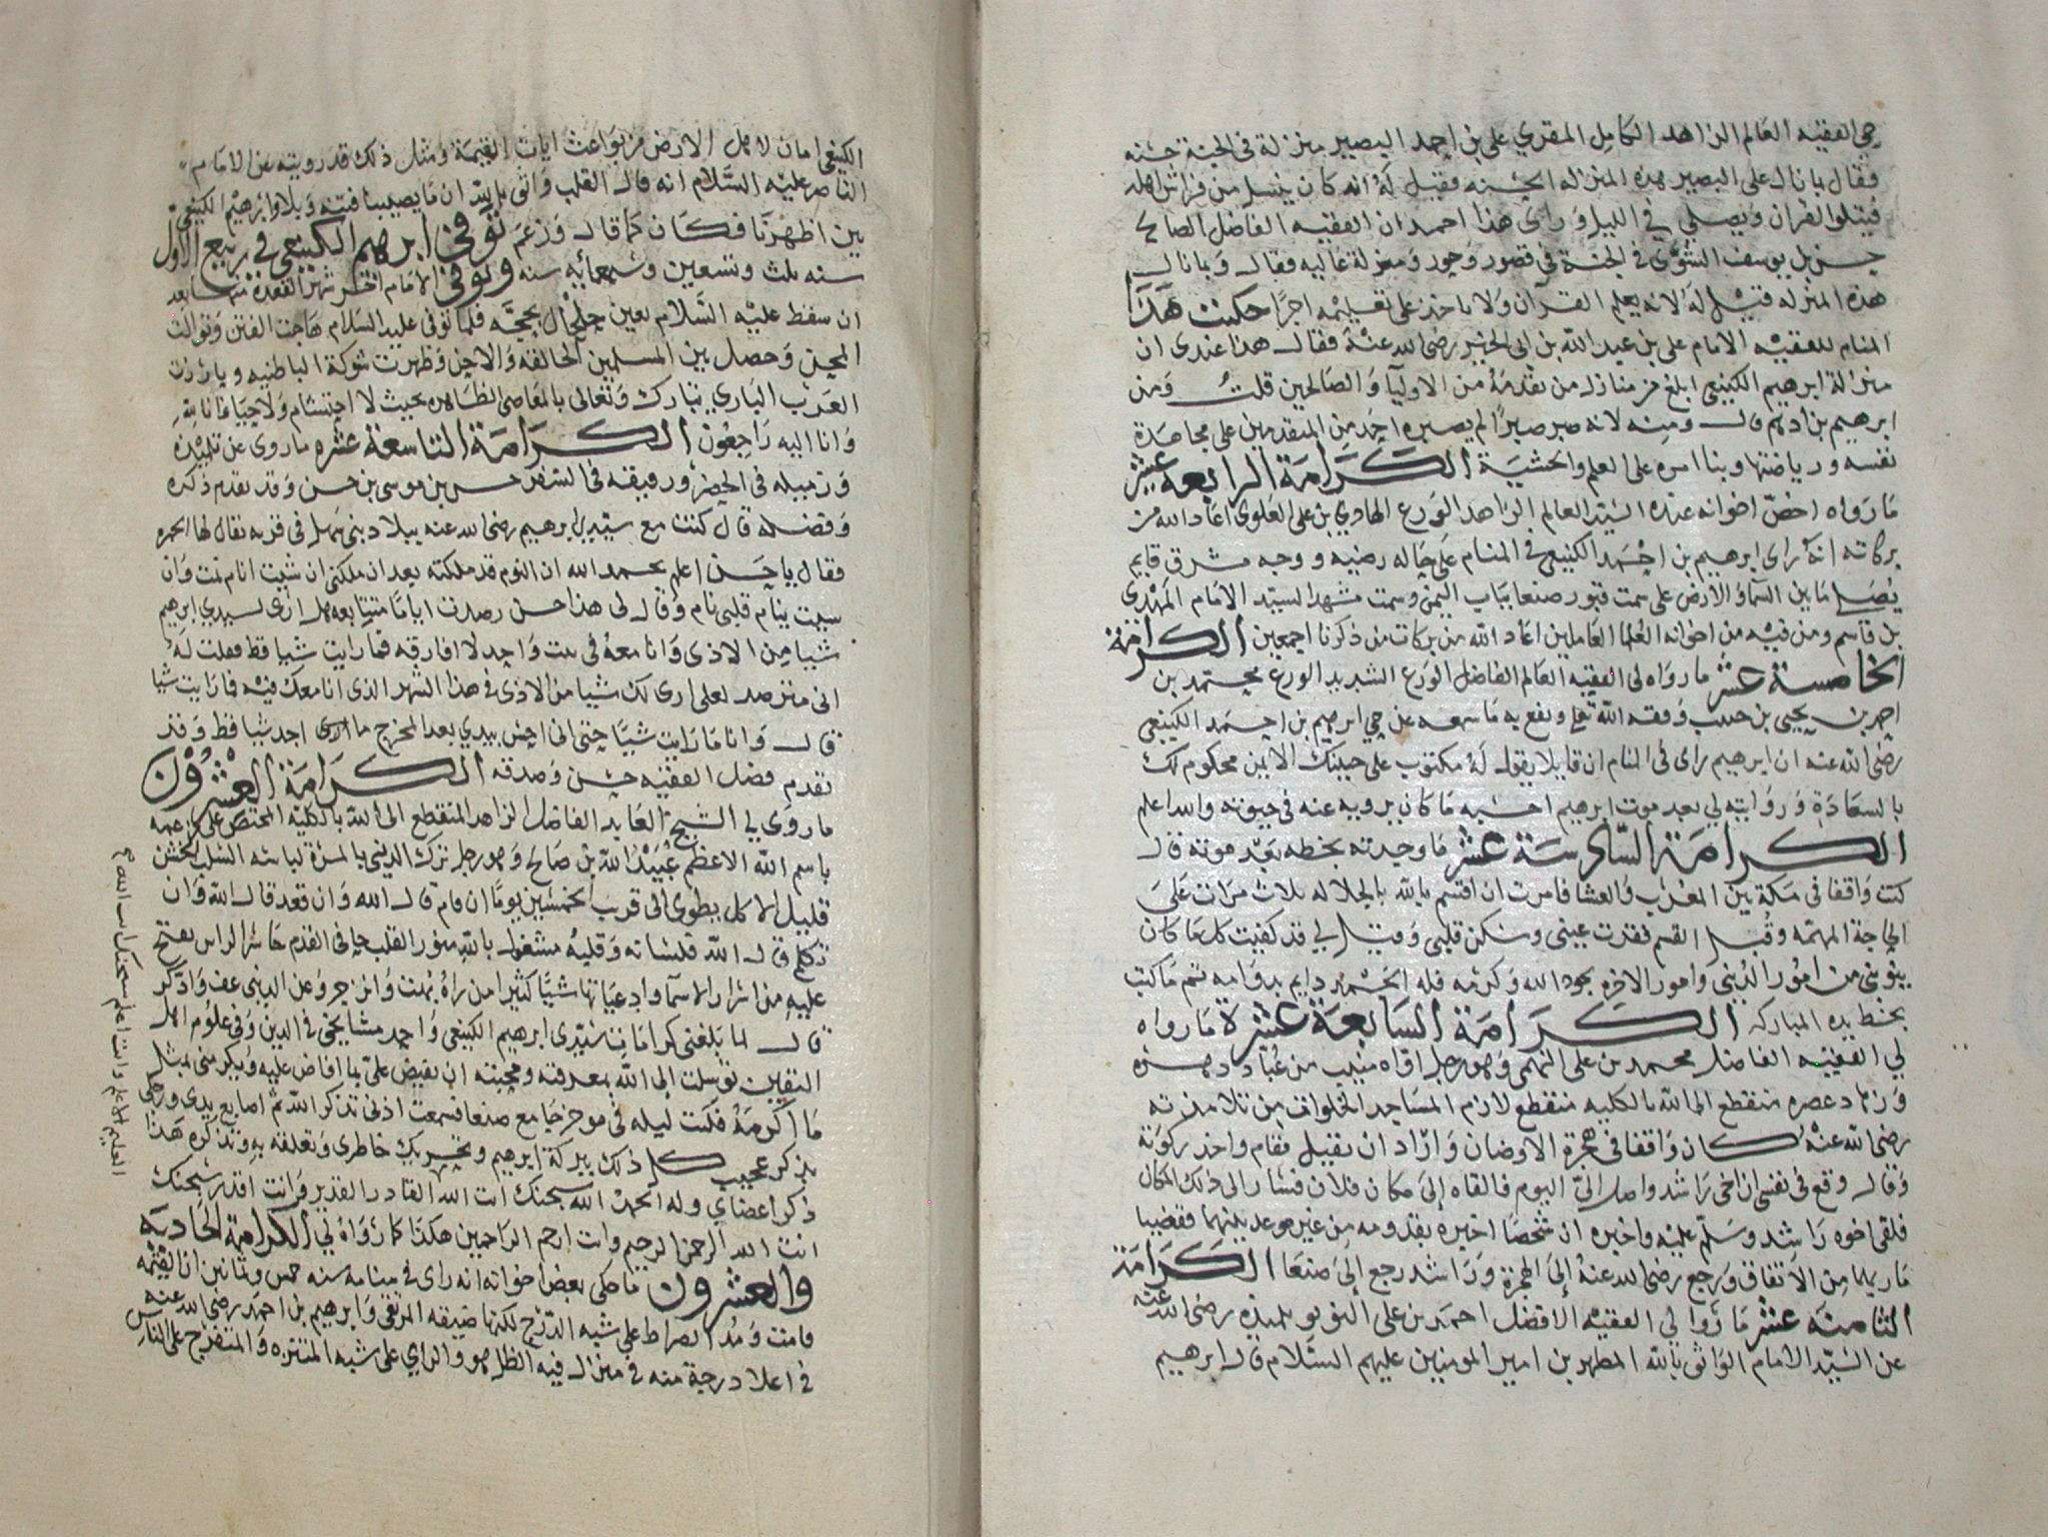 حي الفقيه العالم الزاهد الكامل المقري علي بن احمد البصير منزلة في الجنة حسنه
فقال بما نال علي البصير هذه المنزلة الحسنه فقيل له انه كان ينسل من فراش اهله
فيتلوا القران ويصلي في الليل وراى هذا احمد ان الفقيه الفاضل الصالح
حسن بن يوسف في الجنة في قصور وحور ومنزلة عاليه فقال وبما نال
هذه المنزله فقيل له لانه يعلم القرآن ولا ياخذ على تعليمه اجرا حكيت هذا
المنام للفقيه الامام علي بن عبد الله بن ابي الخير رضي الله عنه فقال هذا عندي ان
منزلة ابرهيم الكينعي ابلغ من منازل من تقدمه من الاوليا والصالحين قلت ومن
ابرهيم بن ادهم قال ومنه لانه صبر صبرا لم يصبره احد من المتقدمين على مجاهدة
نفسه ورياضتها وبنا امره على العلم والخشية الكرامة الرابعة عشر
ما رواه اخص اخوانه عنده السيد العالم الزاهد الورع الهادي بن علي العلوي اعاد الله من
بركاته انه راى ابرهيم بن احمد الكينعي في المنام على حاله رضيه ووجه مشرق قايم
يصلي ما بين السما والارض على سمت قبور صنعا بباب اليمن وسمت مشهد السيد الامام المهدي
بن قاسم ومن فيه من اخوانه العلما العاملين اعاد الله من بركات من ذكرنا اجمعين الكرامة
الخامسة عشر ما رواه لي الفقيه العالم الفاضل الورع الشديد الورع محمد بن
احمد بن يحيى بن حبيب وفقه الله تعالى ونفع به ما سمعه عن حي ابرهيم بن احمد الكينعي
رضي الله عنه ان ابرهيم راى في المنام ان قايلا يقول له مكتوب على جبينك الايمن محكوم لك
بالسعادة وروايته لي بعد موت ابرهيم احسبه ما كان يرويه عنه في حيوته والله اعلم
الكرامة السادسة عشر ما وجدته بخطه بعد موته قال
كنت واقفا في مكة بين المغرب والعشا فامرت ان اقسم بالله بالجلاله ثلاث مرات على
الحاجة المهمة وقبل القسم فقرت عيني وسكن قلبي وقيل لي قد كفيت كل ما كان
ينوبني من امور الدنيى وامور الاخره بجود الله وكرمه فله الحمد دايم بدوامه تم ما كتب
بخط يده المباركه الكرامة السابعة عشرة ما رواه
لي الفقيه الفاضل محمد بن علي النهمي وهو رجل اواه منيب من عباد دهره
وزهاد عصره منقطع الى الله بالكليه منقطع لازم المساجد الخلوات من تلامذته
رضي الله عنه كان واقفا في هجرة الاوضان واراد ان يقيل فقام واخذ ركوته
وقال وقع في نفسي ان اخي راشد واصل الي اليوم فالقاه الى مكان فلان فسار الى ذلك المكان
فلقى اخوه راشد وسلم عليه واخبره ان شخصا اخبره بقدومه من غير موعد بينهما فقضيا
ماربهما من الاتفاق ورجع رضي الله عنه الى الهجرة وراشد رجع الى صنعا الكرامة
الثامنة عشر ما روا لي الفقيه الافضل احمد بن علي تلميذه رضي الله عنه
عن السيد الامام الواثق بالله المطهر بن امير المومنين عليهم السلام قال ابرهيم
الكينعي امان لاهل الارض من بواعث ايات القيمة ومثل ذلك قد رويته عن الامام
الناصر عليه السلام انه قال القلب واثق بالله ان ما يصيبنا فتنه وبلا وابرهيم الكينعي
بين اظهرنا فكان كما قال وزعم توفى ابرهيم الكينعي في ربيع الاول
سنه ثلث وتسعين وسبعمائه سنه وتوفى الامام اخر شهر القعدة منها بعد
ان سقط عليه السلام فلما توفى عليه السلام هاجت الفتن وتوالت
المحن وحصل بين المسلمين المخالفه والاحن وظهرت شوكة الباطنيه وبارزت
العرب الباري تبارك وتعالى بالمعاصي الظاهره بحيث لا احتشام ولا حيا فانا لله
وانا اليه راجعون الكرامة التاسعة عشره ما روى عن تلميذه
وزميله في الحضر ورفيقه في السفر حسن بن موسى بن حسن وقد تقدم ذكره
وفضله قال كنت مع سيدي ابرهيم رضي الله عنه ببلاد بني سهل في قريه يقال لها
فقال يا حسن اعلم بحمد الله ان النوم قد ملكته بعد ان ملكني ان شيت انام نمت وان
شيت ينام قلبي نام وقال لي هذا حسن رصدت اياما متتابعه هل ارى لسيدي ابرهيم
شيا من الاذى وانا معه في بيت واحد لا افارقه فما رايت شيا قط فقلت له
اني مترصد لعلي ارى لك شيا من الاذى في هذا الشهر الذي انا معك فيه فما رايت شيا
قال وانا ما رايت شيا حتى اني احس بيدي بعد المخرج ما ارى اجد شيا قط وقد
تقدم فضل الفقيه حسن وصدقه الكرامة العشرون
ما روى لي الشيخ العابد الفاضل الزاهد المنقطع الى الله بالكلية المختص على
باسم الله الاعظم عبيد الله بن صالح وهو رجل ترك الدنيى بالمرة لباسه السلب الخشن
قليل الاكل يطوي الى قرب الخمسين يوما ان قام قال الله وان قعد قال الله وان
تكلم قال الله فلسانه وقلبه مشغول بالله منور القلب حافي القدم حاسر الراس يفتح
عليه من اسرار الاسما وادعياتها شيا كثيرا من راه بهت وانزجر وعن الدنيى عف وادكر
قال لما بلغني كرامات سيدي ابرهيم الكينعي واحد مشايخي في الدين وفي علوم اهل
اليقين توسلت الى الله بمعرفته ومحبته ان يفيض علي بما افاض عليه ويكرمني بمثل
ما اكرمه فكنت ليله في موخر جامع صنعا فسمعت اذني تذكر الله ثم اصابع يدي ورجلي
بذكر عجيب كل ذلك ببركة ابرهيم وتحريك خاطري وتعلقه به وتذكره هذا
ذكر اعضاي وله الحمد الله سبحنك انت الله القادر القدير وانت اقدر سبحنك
انت الله الرحمن الرحيم وانت ارحم الراحمين هكذا كما رواه لي الكرامة الحاديه
والعشرون ما حكى بعض اخوانه انه راى في منامه سنه خمس وثمانين ان القيمه
قامت ومد الصراط على شبه الدرج لكنها ضيقه المرتقى وابرهيم بن احمد رضي الله عنه
في اعلا درجة منه في منزل فيه الظل هو والراي على شبه المتنزه والمتفرج على الناس
العليم الاعلم وانت اعلم سبحنك انت الله